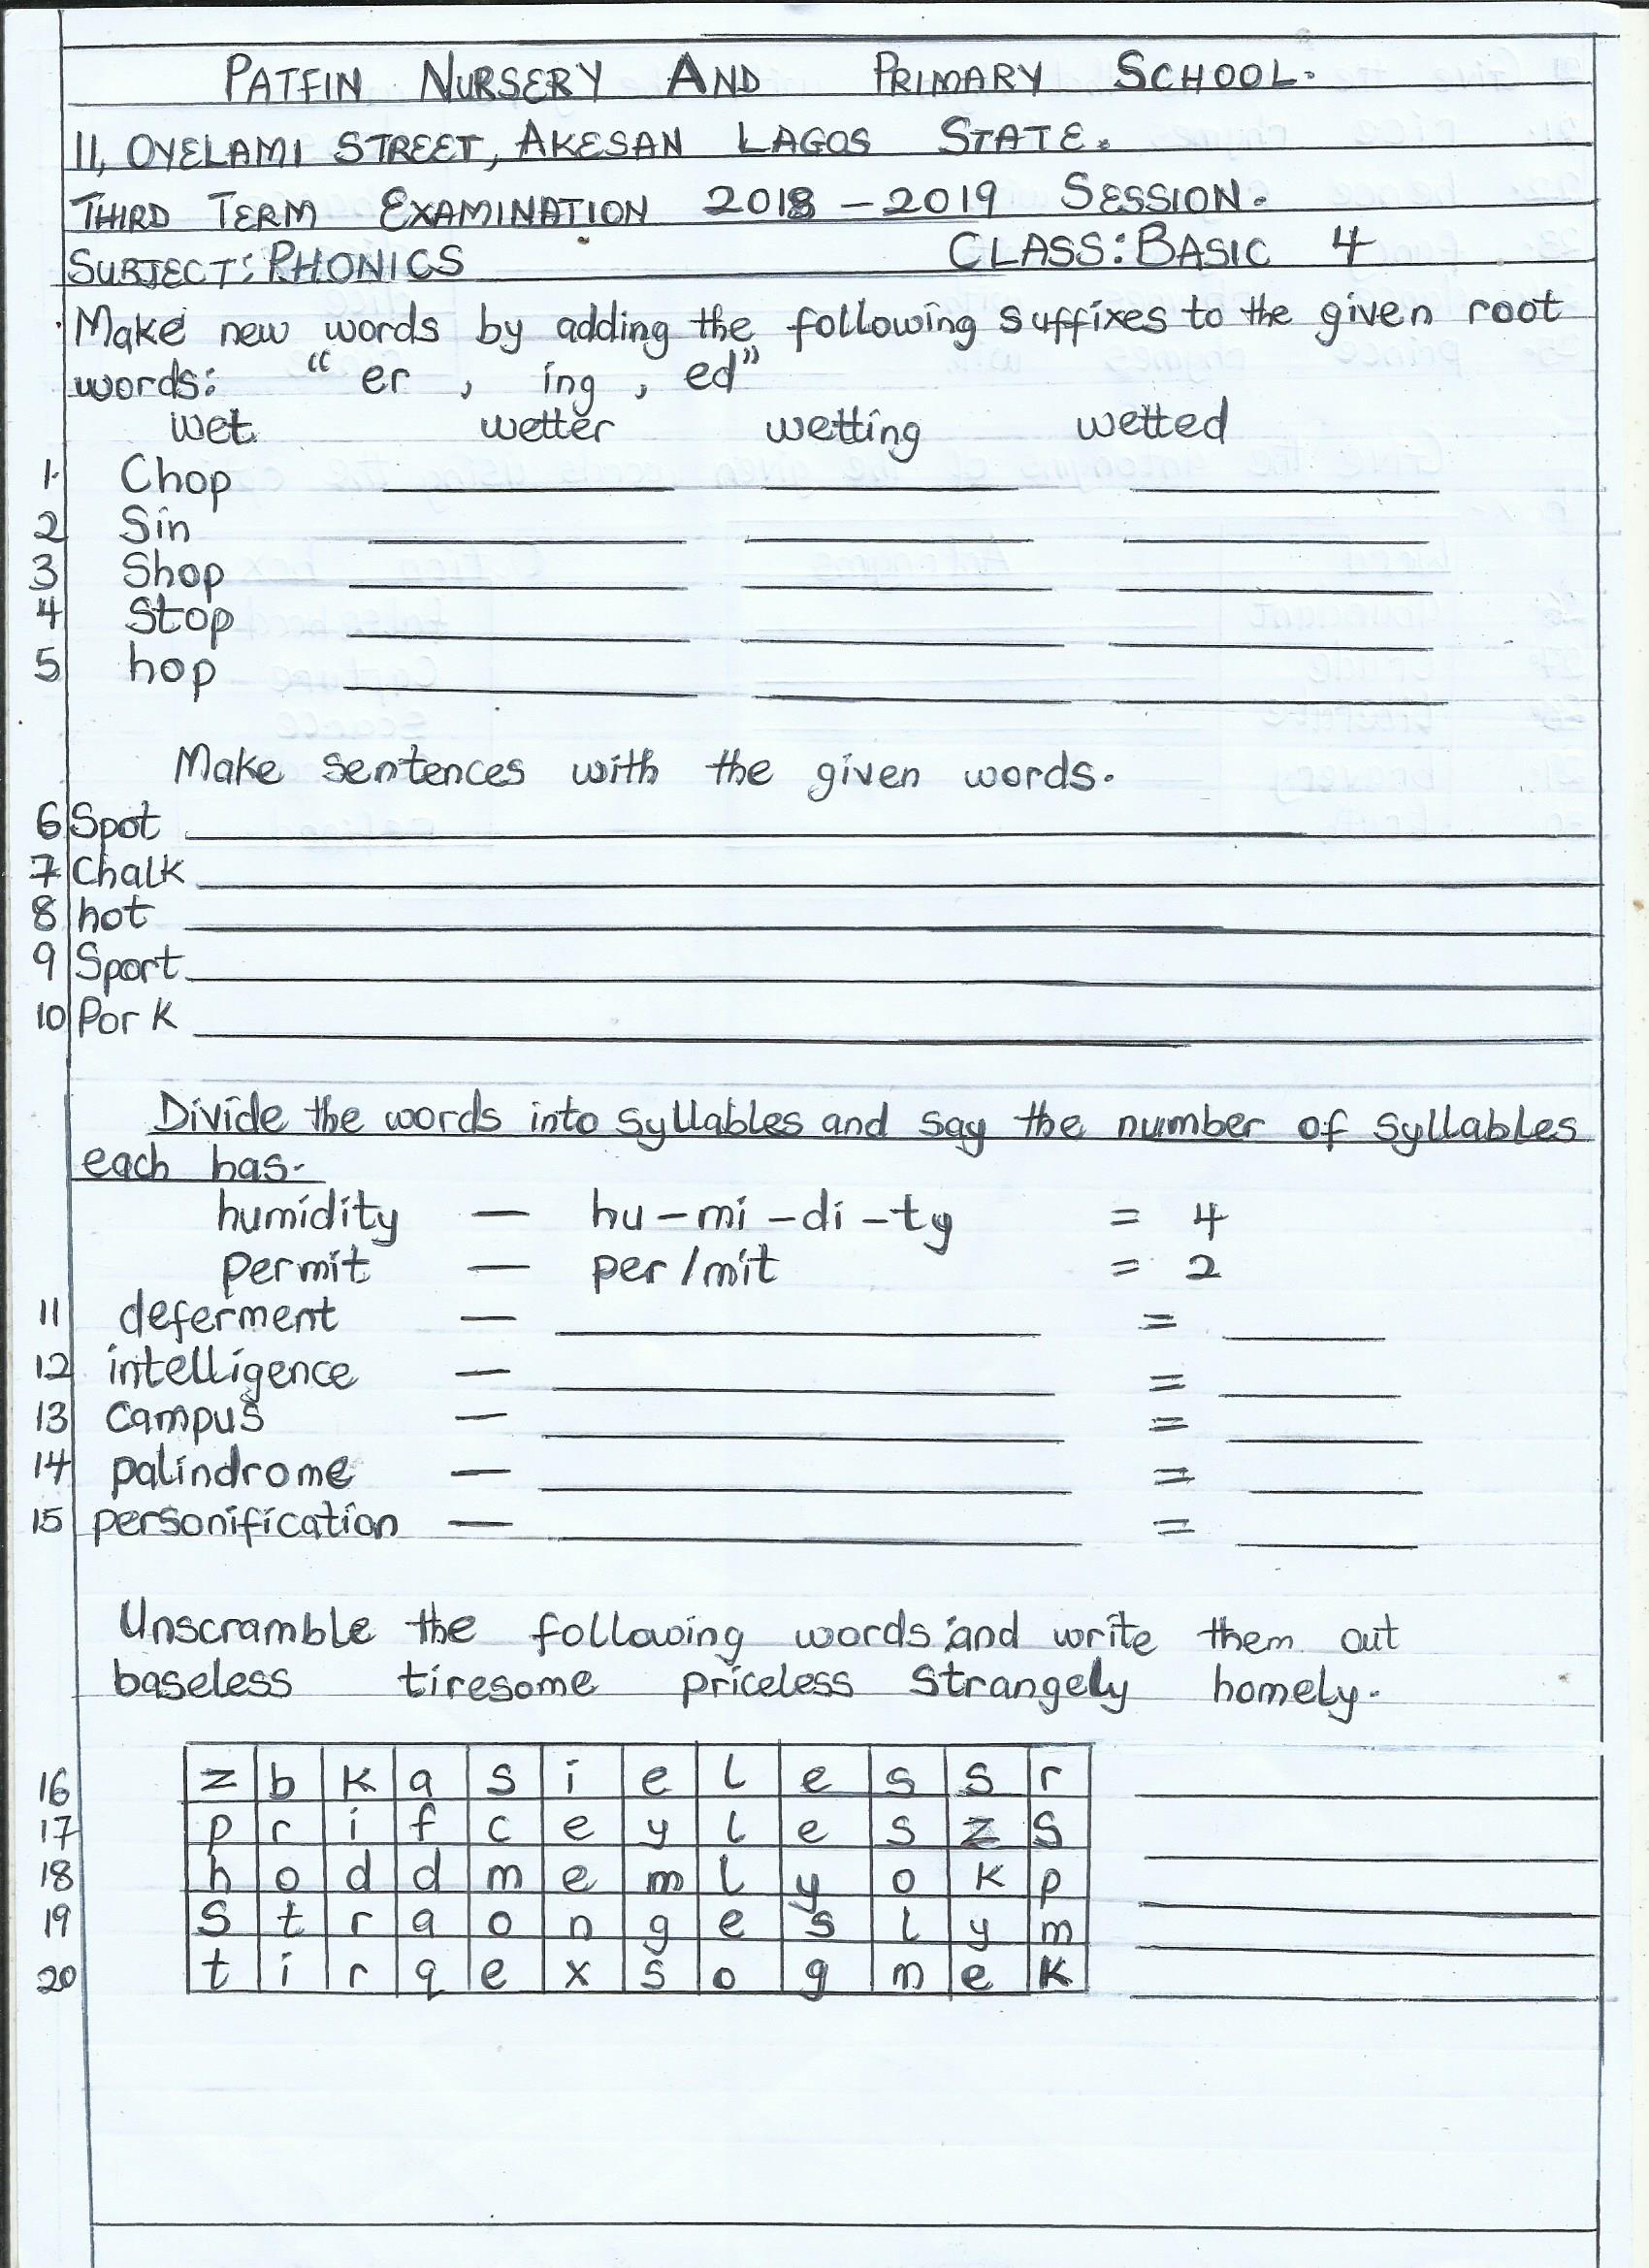 PATFIN NURSERY AND PRIMARY SCHOOL.
11, OYELAMI STREET, AKESAN LAGOS STATE.
THIRD TERM EXAMINATION 2018 - 2019 SESSION.
SUBJECT: PHONICS CLASS: BASIC 4
Make new words by adding the following suffixes to the given root
words: "er, ing, ed"
wet. wetter wetting wetted
1. Chop
2 Sin
3 Shop
4 Stop
5 hop
Make sentences with the given words.
6 Spot
7 Chalk
8 hot
9 Sport
10 Pork
Divide the words into syllables and say the number of syllables
each has.
humidity — hu-mi-di-ty = 4
permit — per/mit = 2
11 deferment — =
12 intelligence — =
13 campus — =
14 palindrome — =
15 personification — =
Unscramble the following words and write them out
baseless tiresome priceless strangely homely.
16 z b k a s i e l e s s r
17 p r i f c e y l e s z s
18 h o d d m e m l y o k p
19 s t r a o n g e s l y m
20 t i r q e x s o g m e k